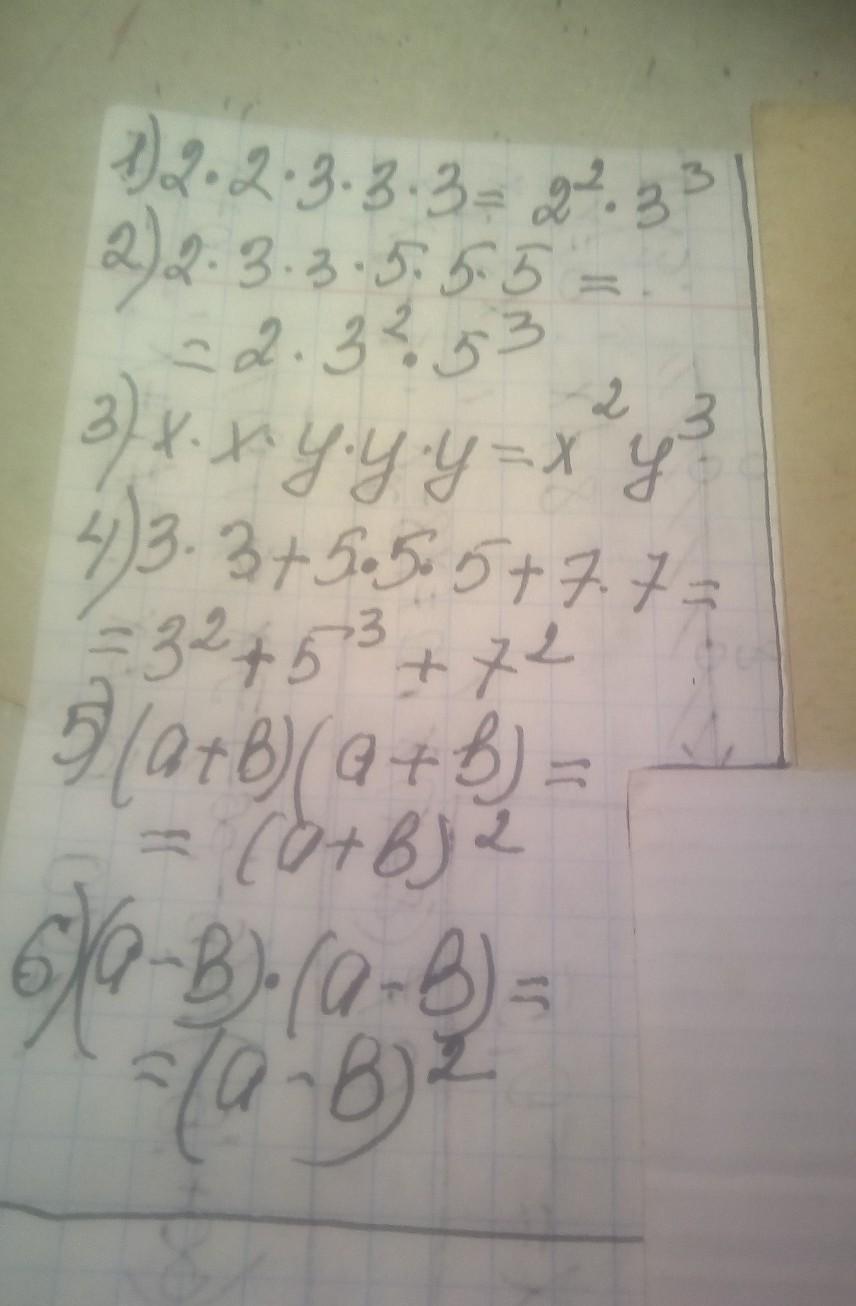 1) 2·2·3·3·3= 2²·3³
2) 2·3·3·5·5·5 =
= 2·3²·5³
3) x·x·y·y·y=x²y³
4) 3·3+5·5·5+7·7=
=3²+5³+7²
5) (a+в)(a+в)=
= (a+в)²
6) (a-в)·(a-в)=
=(a-в)²